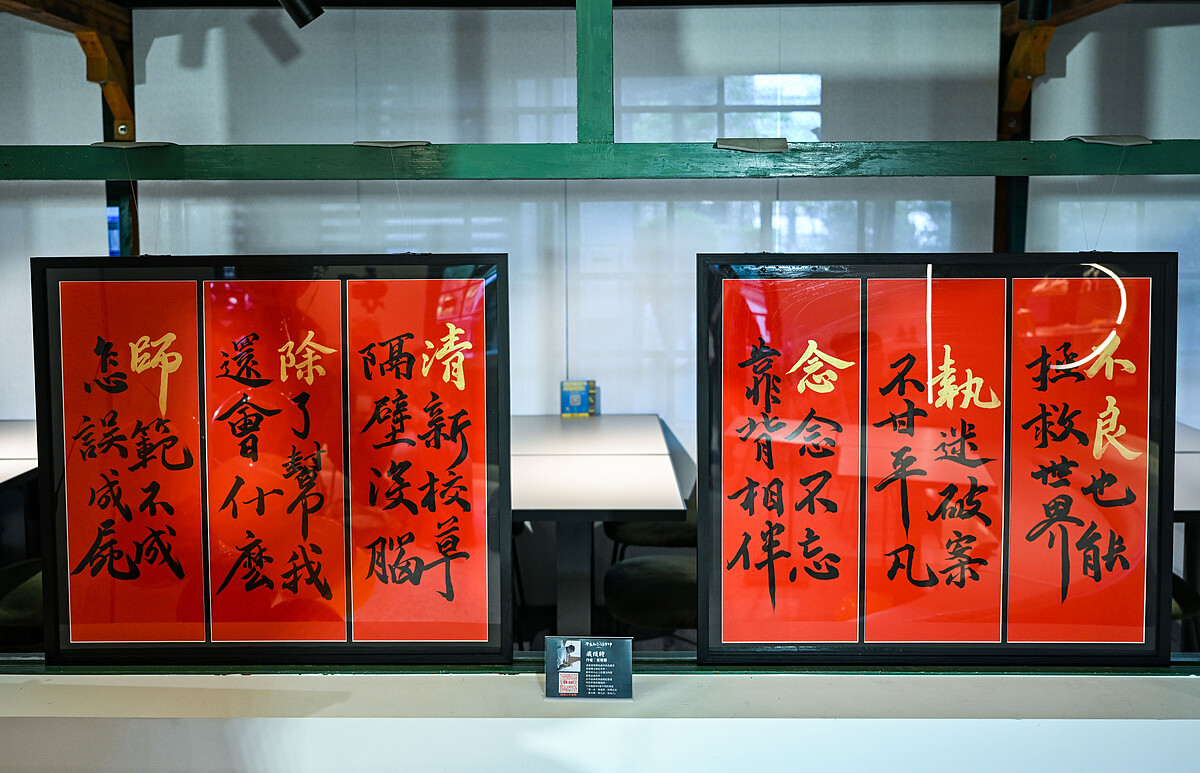 不良也能
拯救世界
執迷破案
不甘平凡
念念不忘
靠背相伴
清新校草
隔壁沒腦
除了幫我
還會什麼
師範不成
怎誤成屍